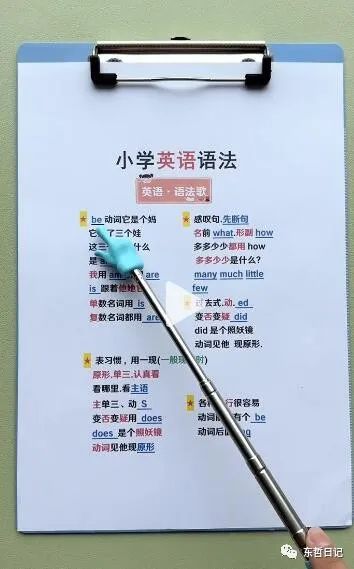 小学英语语法
英语·语法歌
be 动词它是个妈
它 了三个娃
这三 什么
是
我用 am are
is 跟着他她它
单数名词用 is
复数名词都用 are
表习惯，用一现(一般现 时)
原形.单三.认真看
看哪里.看主语
主单三、动 S
变否变疑用 does
does 是个照妖镜
动词见他现原形
感叹句.先断句
名前 what.形副 how
多多少少都用 how
多多少少是什么?
many much little
few
过去式.动. ed
变否变疑 did
did 是个照妖镜
动词见他 现原形.
各 行很容易
动词 有个 be
动词后
东哲日记